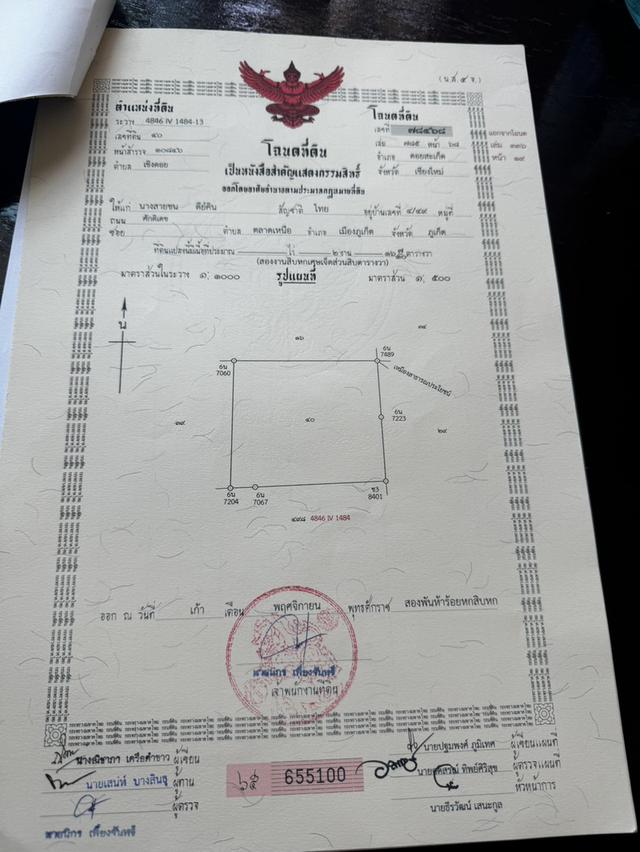 (น.ส. ๔ จ.)
ตำแหน่งที่ดิน
ระวาง 4846 IV 1484-13
เลขที่ดิน ๔๐
หน้าสำรวจ ๑๐๘๔๖
ตำบล เชิงดอย
โฉนดที่ดิน
เลขที่ ๗๘๕๖๘
เล่ม ๗๘๕ หน้า ๖๘
อำเภอ ดอยสะเก็ด
จังหวัด เชียงใหม่
แยกจากโฉนด
เล่ม ๓๓๖
หน้า ๑๙
โฉนดที่ดิน
เป็นหนังสือสำคัญแสดงกรรมสิทธิ์
ออกโดยอาศัยอำนาจตามประมวลกฎหมายที่ดิน
ให้แก่ นางสายชน ดีย์ดิน สัญชาติ ไทย อยู่บ้านเลขที่ ๔/๔๙ หมู่ที่
ถนน ศักดิเดช
ซอย ตำบล ตลาดเหนือ อำเภอ เมืองภูเก็ต จังหวัด ภูเก็ต
ที่ดินแปลงนี้มีเนื้อที่ประมาณ ไร่ ๒ งาน ๑๖ ตารางวา
(สองงานสิบหกเศษเจ็ดส่วนสิบตารางวา)
มาตราส่วนในระวาง ๑: ๑๐๐๐ รูปแผนที่ มาตราส่วน ๑: ๕๐๐
น
๓๖ ๓๘
6น
7060
6น
7489
เหมืองสาธารณประโยชน์
๓๙ ๔๐
6น
7223
๒๙
6น
7204
6น
7067
ช3
8401
๔๙๘ 4846 IV 1484
ออก ณ วันที่ เก้า เดือน พฤศจิกายน พุทธศักราช สองพันห้าร้อยหกสิบหก
นายนิกร เพียงจันทร์
เจ้าพนักงานที่ดิน
นางณิชาภา เครือคำขาว ผู้เขียน
นายเสน่ห์ บางสินธุ ผู้ทาน
ผู้ตรวจ
นายนิกร เพียงจันทร์
๖๕ 655100
นายปฐมพงศ์ ภูมิเทศ ผู้เขียนแผนที่
ทิพย์ศิริสุข ผู้ตรวจแผนที่
หัวหน้าการ
นายธีรวัฒน์ เสนะกูล